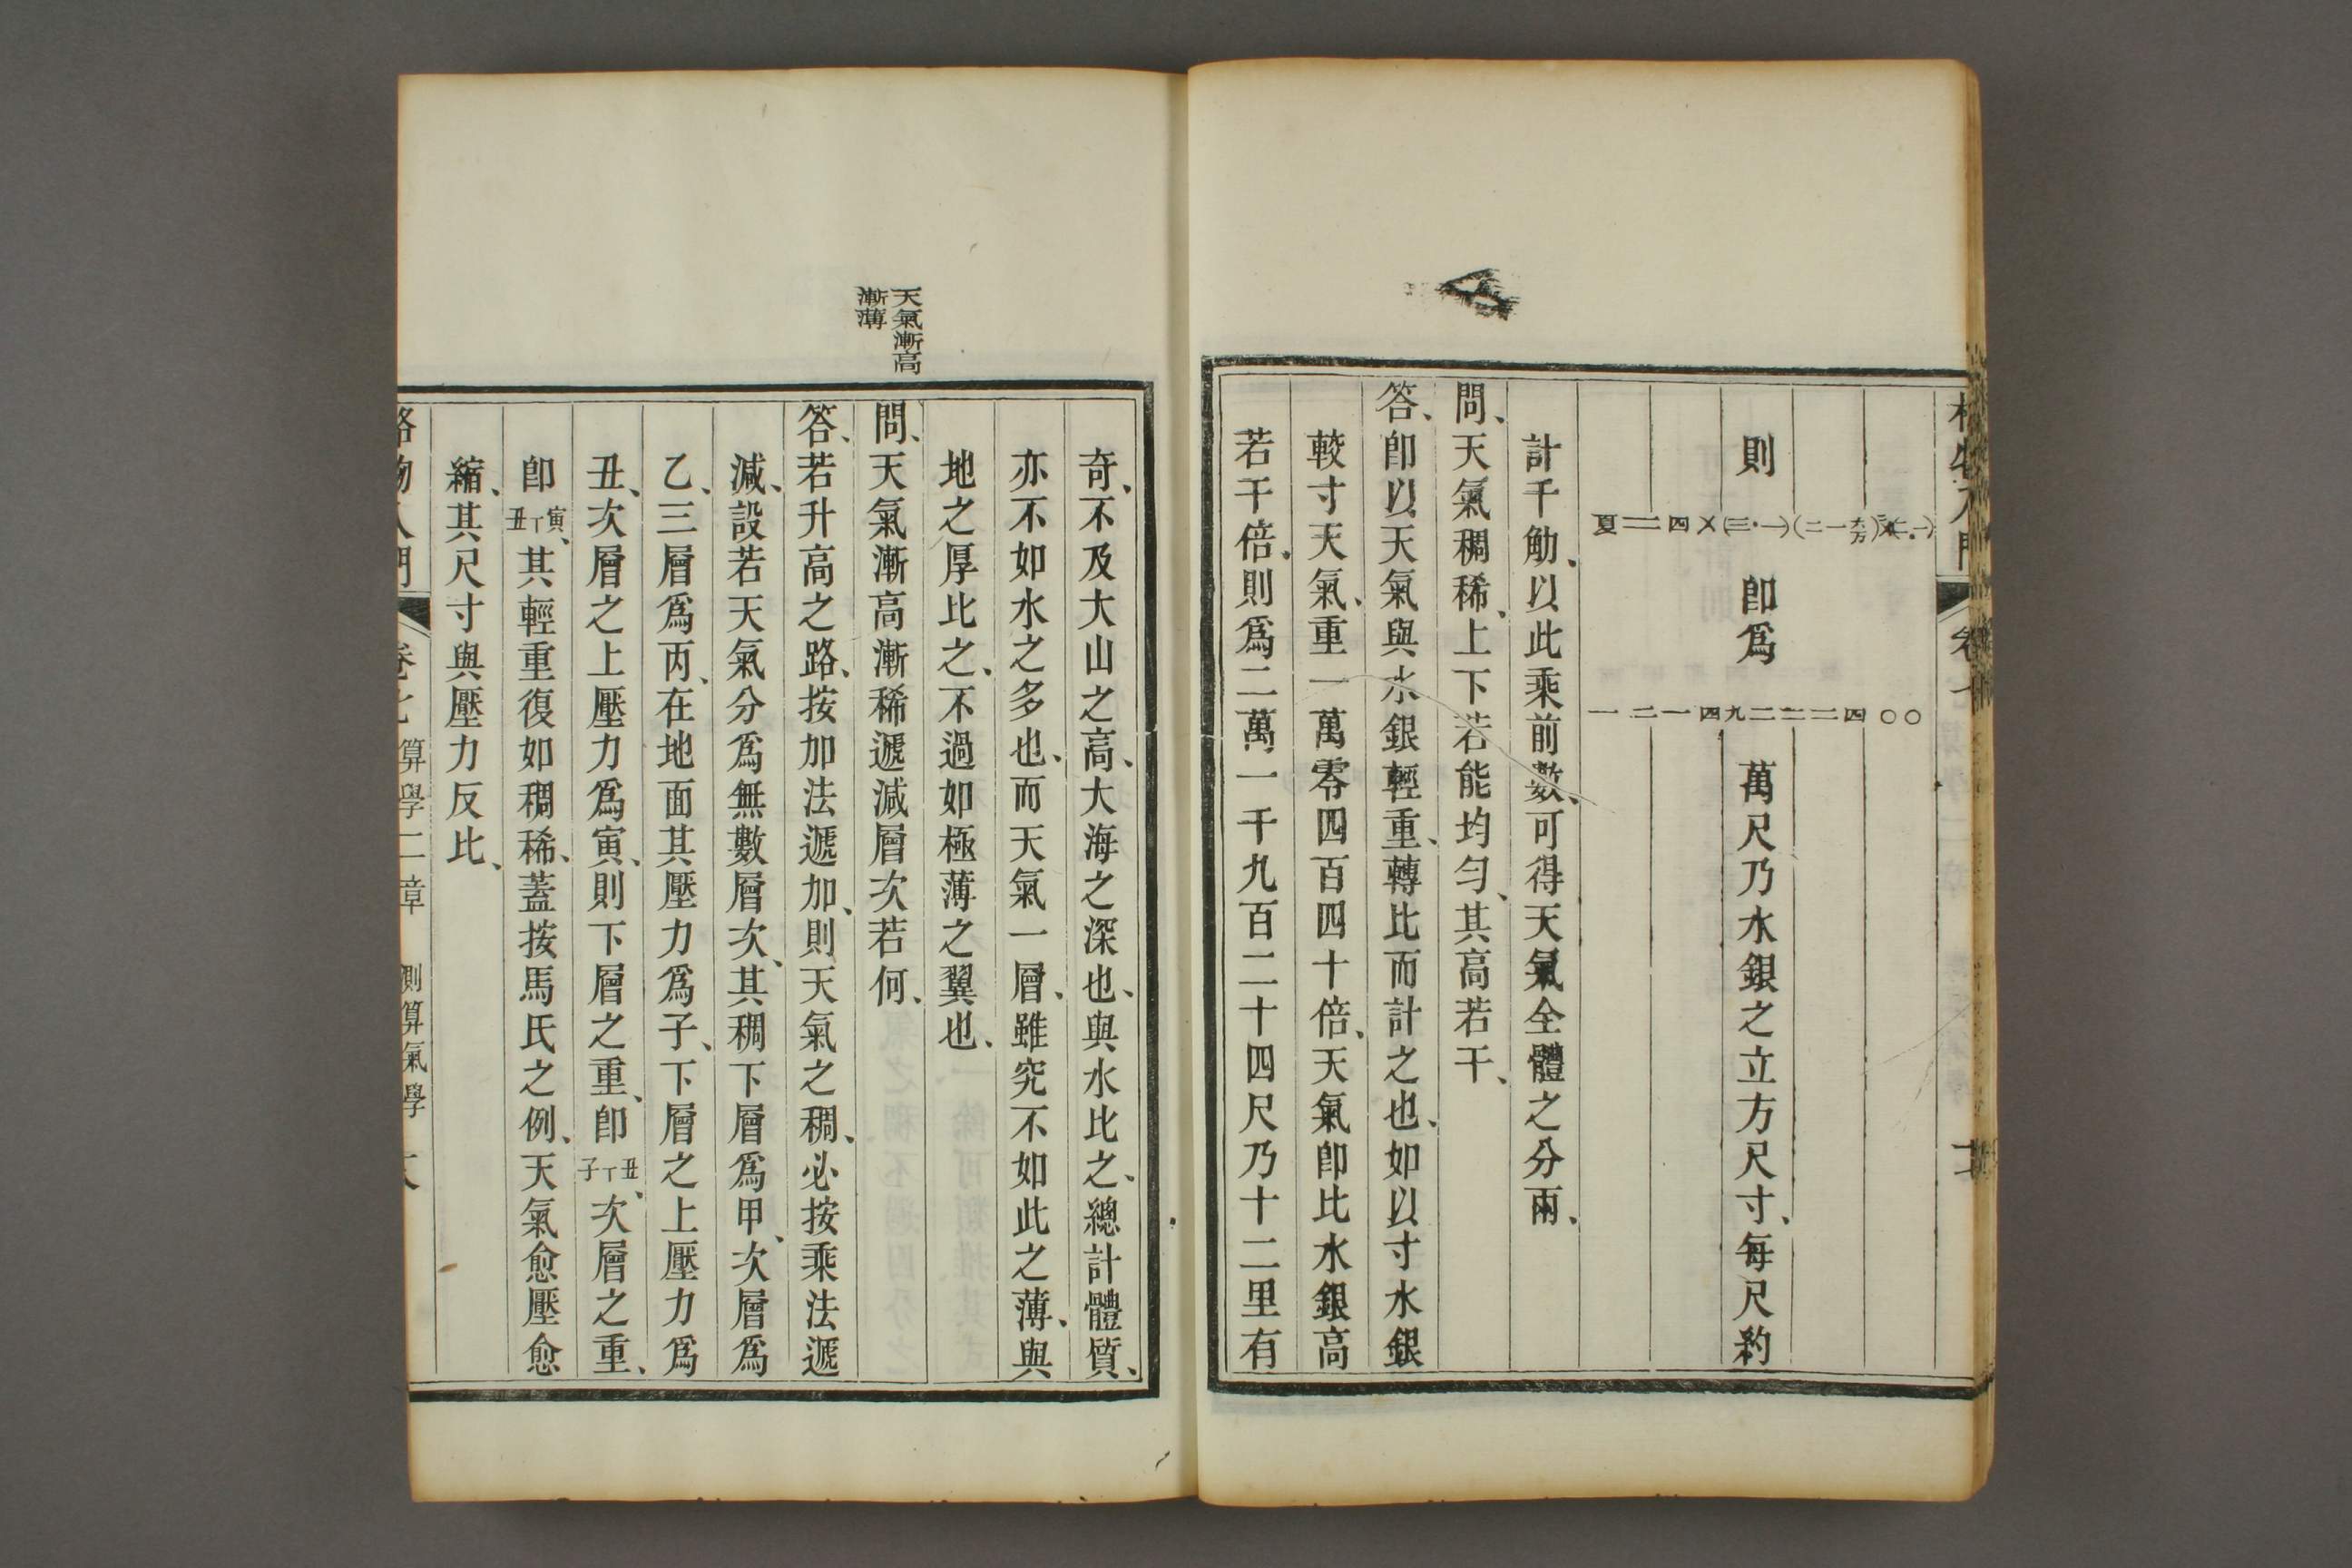 格物入門 卷七
則 即爲 萬尺乃水銀之立方尺寸、每尺約
計千觔、以此乘前數、可得天氣全體之分兩、
問、天氣稠稀、上下若能均勻、其高若干、
答、即以天氣與水銀輕重、轉比而計之也、如以寸水銀
較寸天氣、重一萬零四百四十倍、天氣即比水銀高
若干倍、則爲二萬一千九百二十四尺乃十二里有
天氣漸高
漸薄
奇、不及大山之高、大海之深也、與水比之、總計體質、
亦不如水之多也、而天氣一層、雖究不如此之薄、與
地之厚比之、不過如極薄之翼也、
問、天氣漸高漸稀遞減層次若何、
答、若升高之路、按加法遞加、則天氣之稠、必按乘法遞
減、設若天氣分爲無數層次、其稠下層爲甲、次層爲
乙、三層爲丙、在地面其壓力爲子、下層之上壓力爲
丑、次層之上壓力爲寅、則下層之重、即子丅丑、次層之重、
即丑丅寅、其輕重復如稠稀、蓋按馬氏之例、天氣愈壓愈
縮、其尺寸與壓力反比、
格物入門 卷七 算學二章 測算氣學